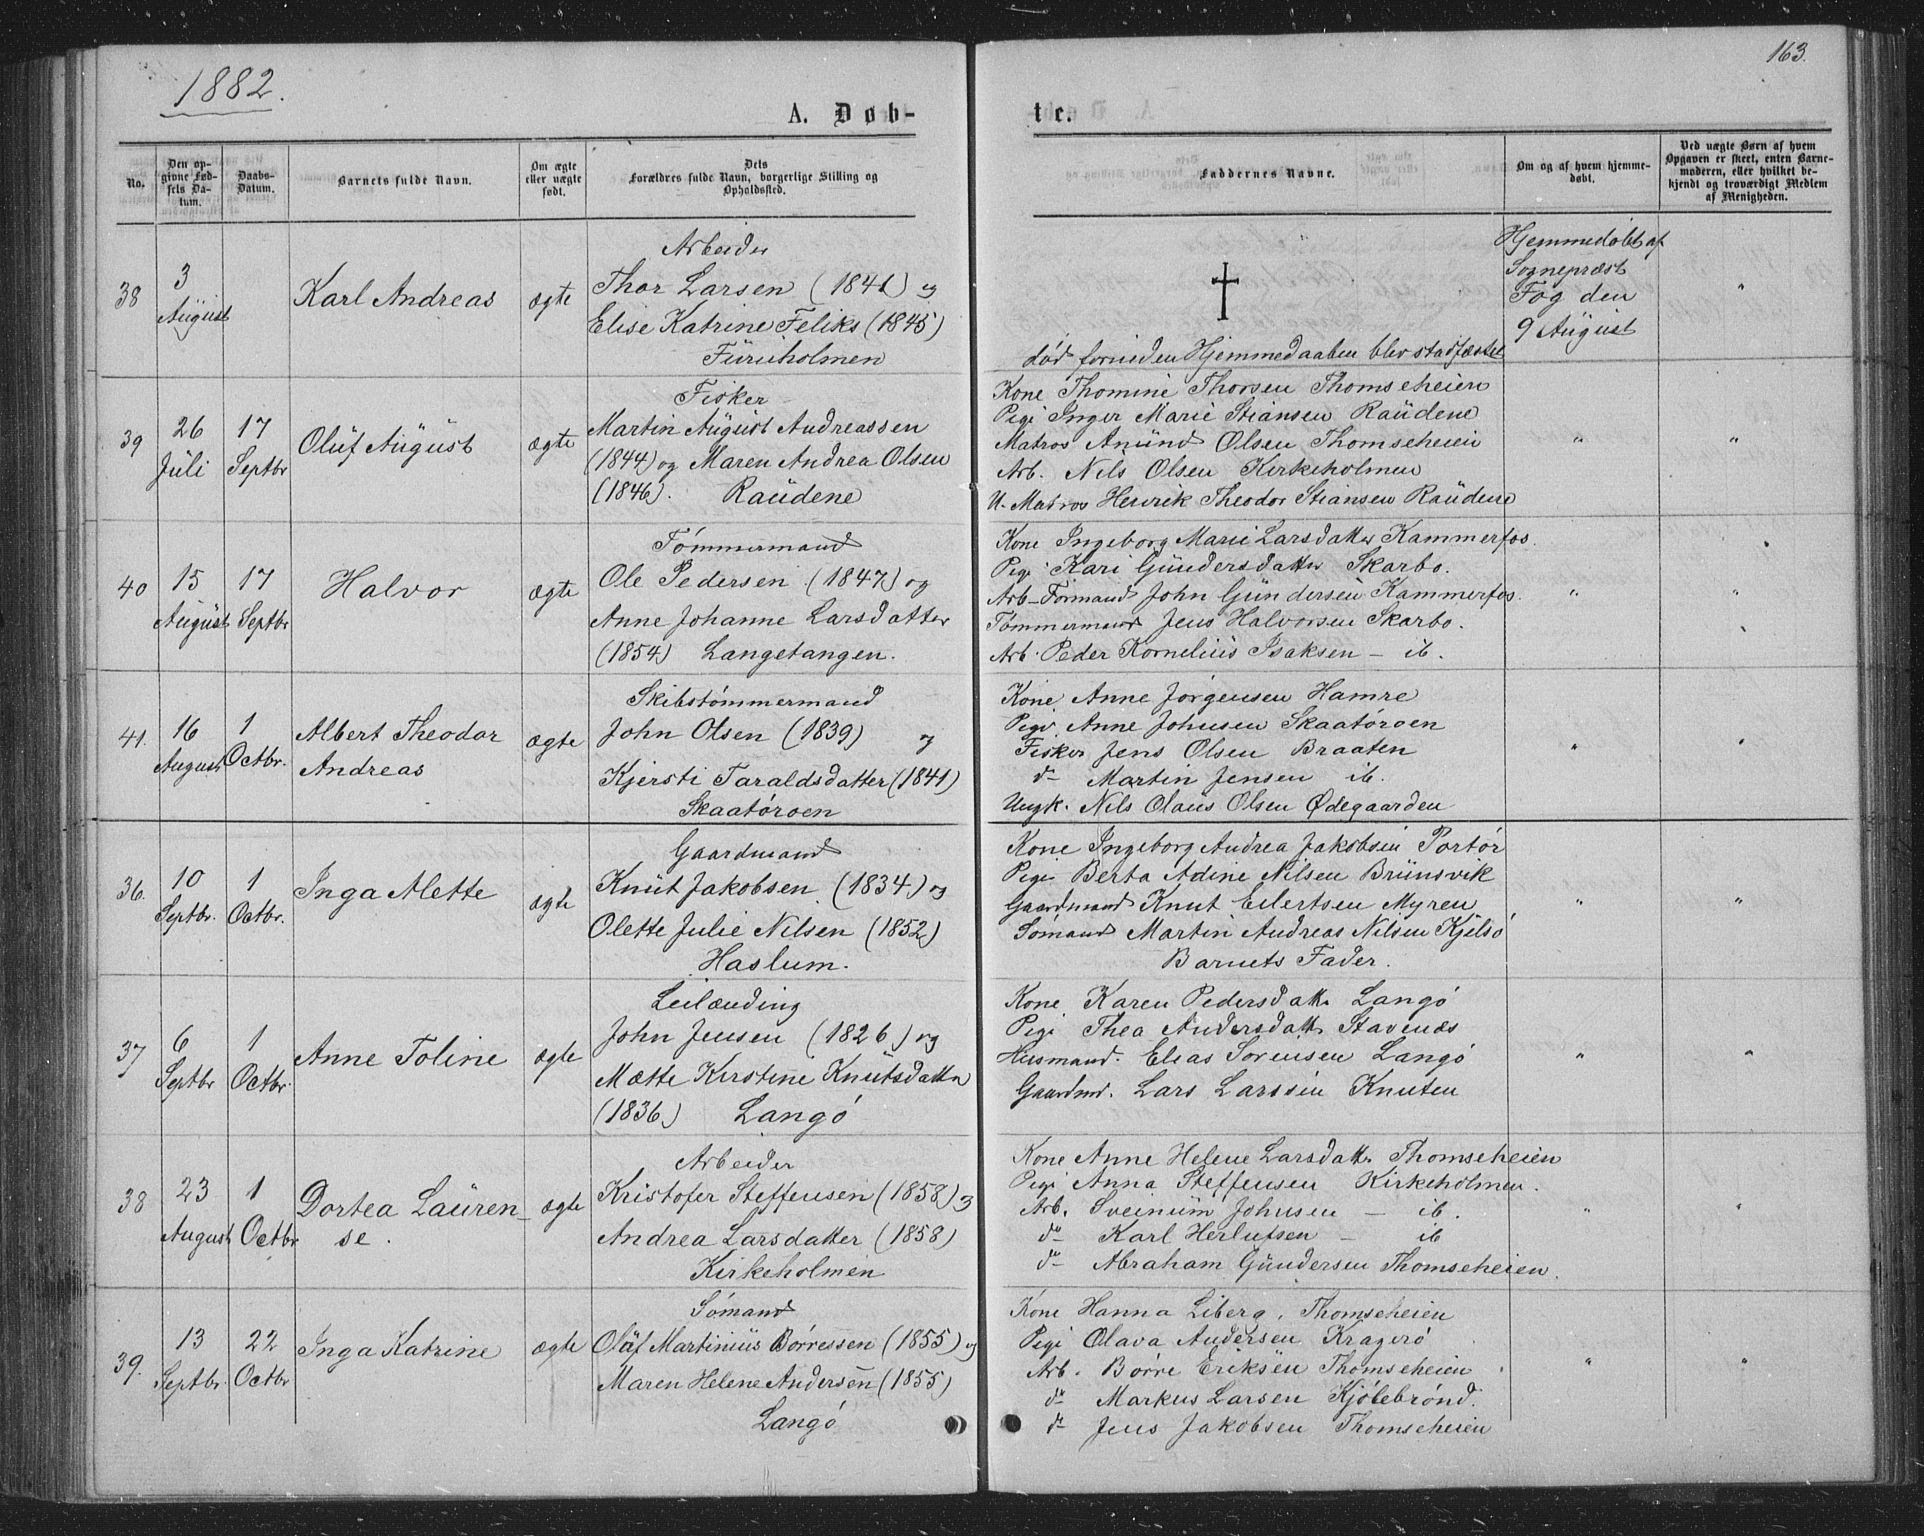 1882.
163.
A. Døb-
te.
No.
Den op-
givne Fød-
sels Da-
tum.
Daabs-
Datum.
Barnets fulde Navn.
Om ægte
eller uægte
født.
Dets
Forældres fulde Navn, borgerlige Stilling og
Opholdssted.
Faddernes Navne.
Om og af hvem hjemme-
døbt.
Ved uægte Børn af hvem
Opgaven er skeet, enten Barne-
moderen, eller hvilket be-
kjendt og troværdigt Medlem
af Menigheden.
38
3
August
Karl Andreas
ægte
Arbeider
Thor Larsen (1841) og
Elise Katrine Feliks (1845)
Furuholmen
†
død forinden Hjemmedaaben blev stadfæstet
Hjemmedøbt af
Sognepræst
Fog den
9 August
"
39
26
Juli
17
Septbr
Oluf August
ægte
Fisker
Martin August Andreassen
(1844) og Maren Andrea Olsen
(1846). Raudene
Kone Thomine Thorsen Thomseheien
Pigi Inger Marie Stiansen Raudene
Matros Anund Olsen Thomseheien
Arb. Nils Olsen Kirkeholmen
U. Matros Henrik Theodor Stiansen Raudene
"
"
40
15
August
17
Septbr
Halvor
ægte
Tømmermand
Ole Pedersen (1847) og
Anne Johanne Larsdatter
(1854) Langetangen.
Kone Ingeborg Marie Larsdatter Kammerfos.
Pigi Kari Gundersdatter Skarbo.
Arb-Formand John Gundersen Kammerfos.
Tømmermand Jens Halvorsen Skarbo.
Arb. Peder Kornelius Isaksen - ib.
"
"
41.
16
August
1
Octbr.
Albert Theodor
Andreas
ægte
Skibstømmermand
John Olsen (1839) og
Kjersti Taraldsdatter (1841)
Skaatøroen
Kone Anne Jørgensen Hamre
Pigi Anne Johnsen Skaatøroen
Fisker Jens Olsen Braaten
do Martin Jensen ib.
Ungk. Nils Olaus Olsen Ødegaarden
"
"
36.
10
Septbr.
1
Octbr.
Inga Alette
ægte
Gaardmand
Knut Jakobsen (1834) og
Olette Julie Nilsen (1852)
Haslum.
Kone Ingeborg Andrea Jakobsen Portør
Pigi Berta Adine Nilsen Brunsvik
Gaardmand Knut Eilertsen Myren
Sømand Martin Andreas Nilsen Kjelsø
Barnets Fader.
"
"
37
6
Septbr
1
Octbr.
Anne Toline
ægte
Leilænding
John Jensen (1826) og
Mætte Kirstine Knutsdattr
(1836) Langø
Kone Karen Pedersdattr Langø
Pigi Thea Andersdattr Stavenæs
Husmand. Elias Sørensen Langø
Gaardmd. Lars Larssen Knuten
"
"
38
23
August
1
Octbr
Dortea Lauren-
se.
ægte
Arbeider
Kristofer Steffensen (1858) og
Andrea Larsdatter (1858)
Kirkeholmen
Kone Anne Helene Larsdattr Thomseheien
Pigi Anna Steffensen Kirkeholmen.
Arb. Sveinum Johnsen - ib.
do Karl Herlufsen - ib
do Abraham Gundersen Thomseheien.
"
"
39.
13
Septbr.
22
Octbr
Inga Katrine
ægte
Sømand
Olaf Martinius Børressen (1855) og
Maren Helene Andersen (1855)
Langø
Kone Hanna Liberg, Thomseheien
Pigi Olava Andersen Kragerø
Arb. Børre Eriksen Thomseheien
do Markus Larsen Kjølebrønd.
do Jens Jakobsen Thomseheien
"
"